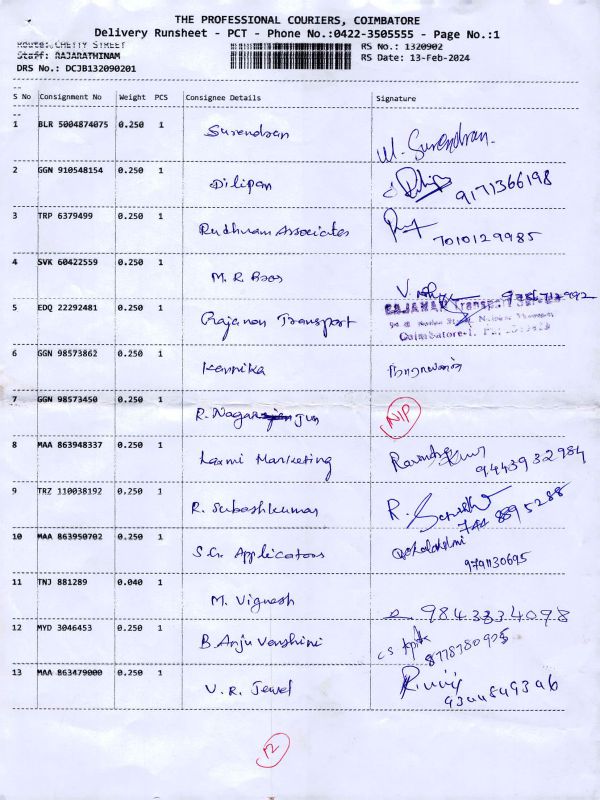 THE PROFESSIONAL COURIERS, COIMBATORE
Delivery Runsheet - PCT - Phone No.:0422-3505555 - Page No.:1
Route: CHETTY STREET
RS No.: 1320902
Staff: RAJARATHINAM
RS Date: 13-Feb-2024
DRS No.: DCJB132090201
S No Consignment No Weight PCS Consignee Details Signature
1 BLR 5004874075 0.250 1 Surendran M. Surendran.
2 GGN 910548154 0.250 1 Dilipan 9171366198
3 TRP 6379499 0.250 1 Rudhram Associates 7010129985
4 SVK 60422559 0.250 1 M. R. Bros
5 EDQ 22292481 0.250 1 Gajanan Transport GAJANAN Transport
Coimbatore-1.
6 GGN 98573862 0.250 1 Kannika
7 GGN 98573450 0.250 1 R. Nagarjun N/P
8 MAA 863948337 0.250 1 Laxmi Marketing 9443932984
9 TRZ 110038192 0.250 1 R. Subashkumar R.
744 8895288
10 MAA 863950702 0.250 1 S.G. Applicators Gokulakshmi
9791130695
11 TNJ 881289 0.040 1 M. Vignesh 9843334098
12 MYD 3046453 0.250 1 B. Anju Varshini
8778780905
13 MAA 863479000 0.250 1 V. R. Jewel
9344849346
12